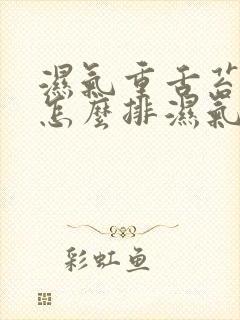 濕氣重舌苔
怎麼排濕氣
彩虹鱼